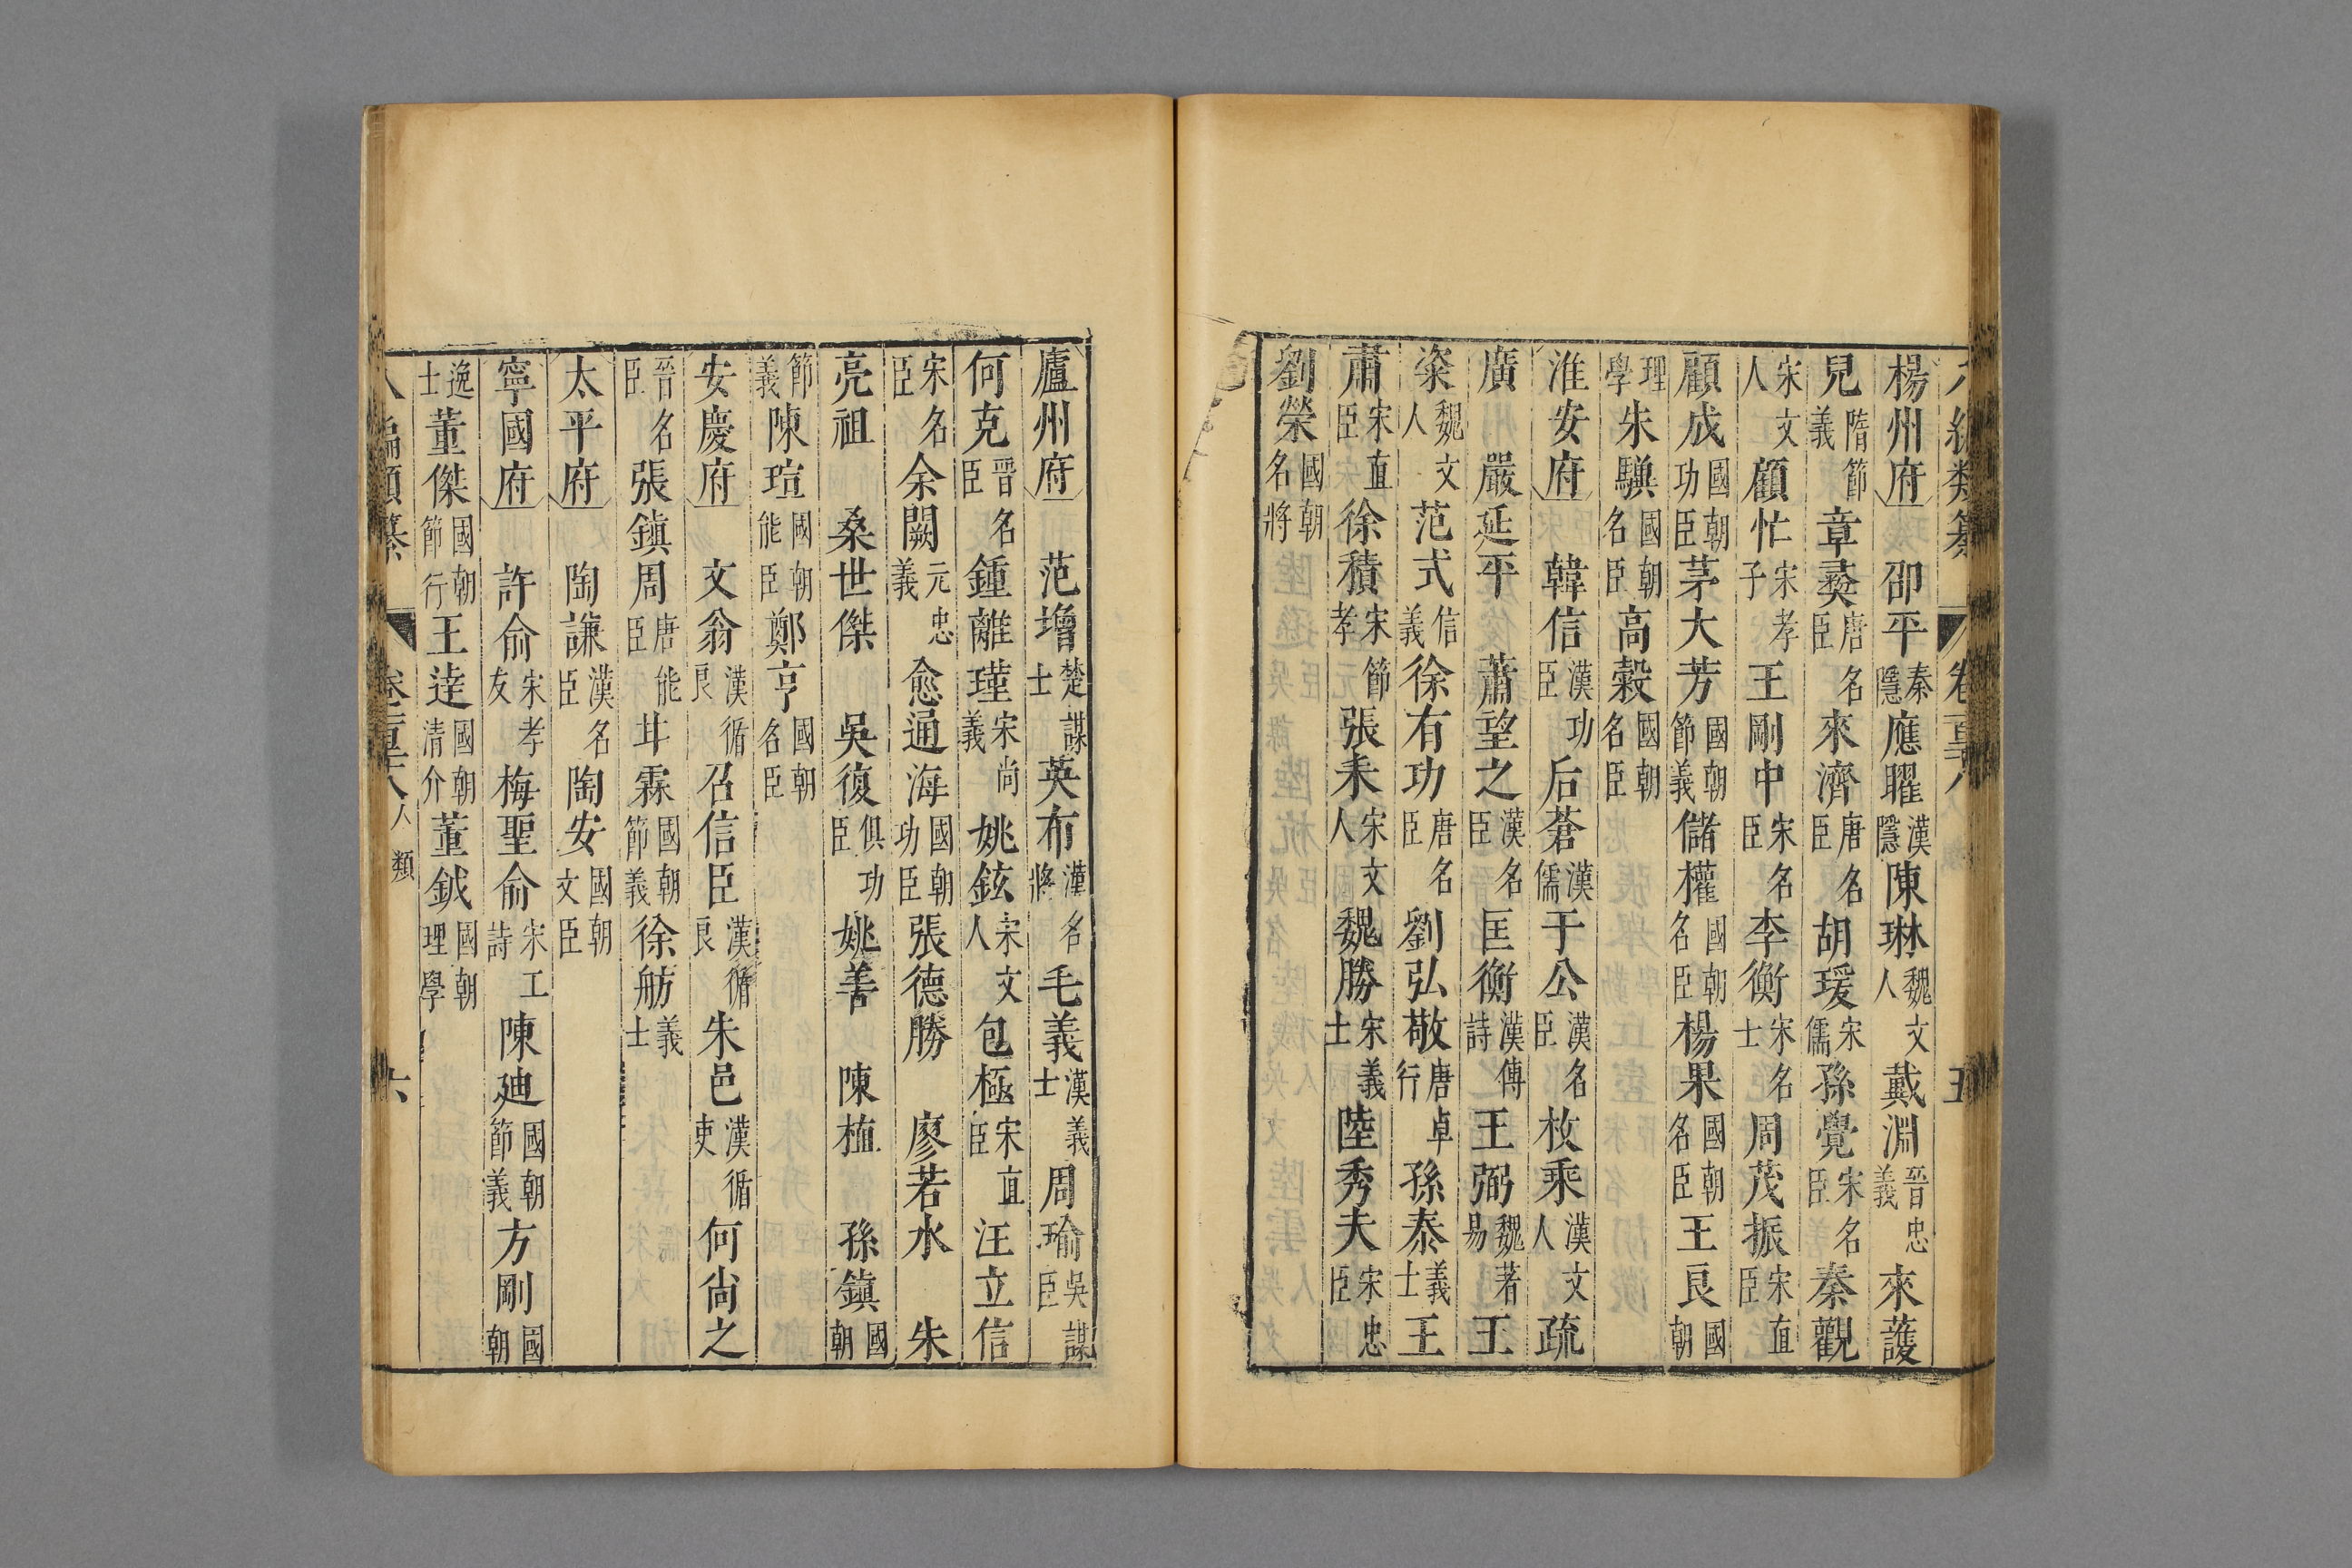 八編類纂 卷一百二十八 五
楊州府 卲平秦隱應曜漢隱陳琳魏文人戴淵晉忠義來護
兒隋節義章䶮唐名臣來濟唐名臣胡瑗宋儒孫覺宋名臣秦觀
宋文人顧忙宋孝子王剛中宋名臣李衡宋名士周茂振宋直臣
顧成國朝功臣茅大芳國朝節義儲權國朝名臣楊果國朝名臣王良國朝
理學朱驥國朝名臣高穀國朝名臣
淮安府 韓信漢功臣后蒼漢儒于公漢名臣枚乘漢文人疏
廣 嚴延平 蕭望之漢名臣匡衡漢傳詩王弼魏著易王
粲魏文人范式信義徐有功唐名臣劉弘敬唐卓行孫泰義士王
肅宋直臣徐積宋節孝張耒宋文人魏勝宋義士陸秀夫宋忠臣
劉榮國朝名將
廬州府 范增楚謀士英布漢名將毛義漢義士周瑜吳謀臣
何克晉名臣鍾離瑾宋尚義姚鉉宋文人包極宋直臣汪立信
宋名臣余闕元忠義愈通海國朝功臣張德勝 廖若水 朱
亮祖 桑世傑 吳復俱功臣姚善 陳植 孫鎮國朝
節義陳瑄國朝能臣鄭亨國朝名臣
安慶府 文翁漢循良召信臣漢循良朱邑漢循吏何尙之
晉名臣張鎮周唐能臣甘霖國朝節義徐舫義士
太平府 陶謙漢名臣陶安國朝文臣
寧國府 許俞宋孝友梅聖俞宋工詩陳廸國朝節義方剛國朝
逸士董傑國朝節行王逹國朝清介董鉞國朝理學
八編類纂 卷一百二十八 人類 六